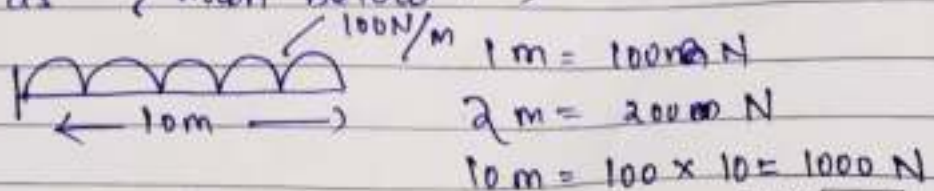 100N/m
1 m = 100 N
2 m = 200 N
← 10m →
10 m = 100 × 10 = 1000 N